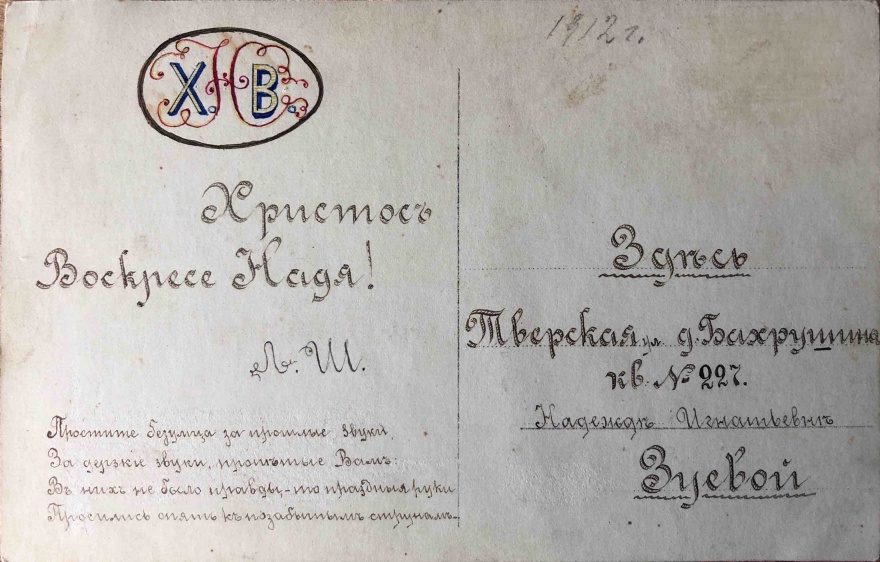 1912 г.
Х. Н В.
Христосъ
Воскресе Надя!
Л. Ш.
Простите безумца за прошлые звуки,
За дерзкiе звуки, пропѣтые Вамъ:
Въ нихъ не было правды,-то праздныя руки
Просились опять къ позабытымъ струнамъ.
Здѣсь
Тверская ул. д. Бахрушина
кв. № 227.
Надеждѣ Игнатьевнѣ
Зуевой